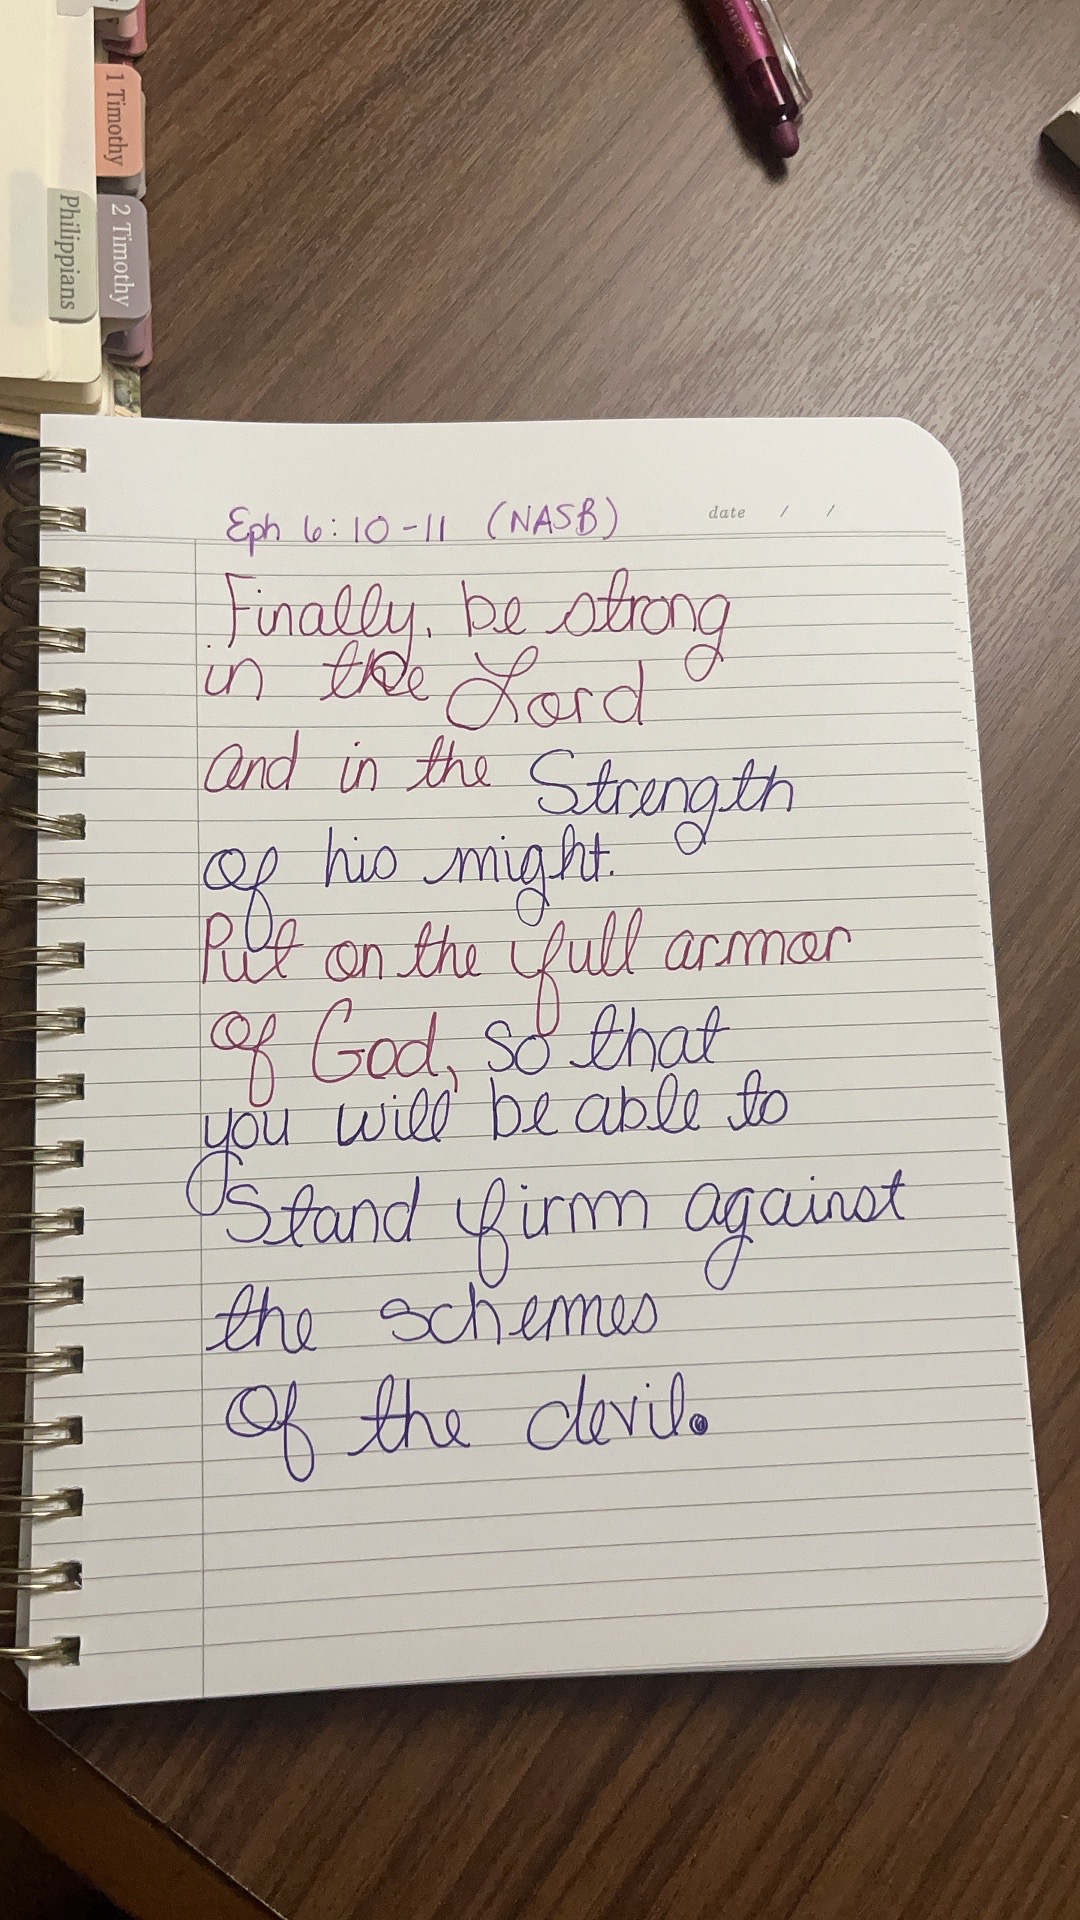 1 Timothy
2 Timothy
Philippians
Eph 6:10-11 (NASB)
date / /
Finally, be strong
in the Lord
and in the Strength
of his might.
Put on the full armor
of God, so that
you will be able to
Stand firm against
the schemes
Of the devil.